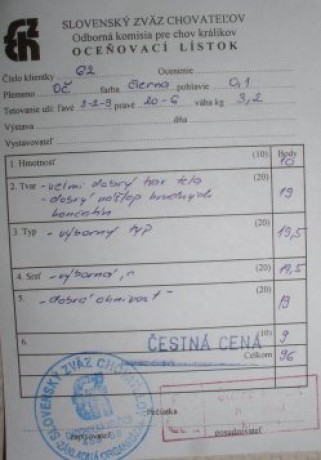 SLOVENSKÝ ZVÄZ CHOVATEĽOV
Odborná komisia pre chov králikov
OCEŇOVACÍ LÍSTOK
Číslo klientky 62 Ocenenie
Plemeno OČ farba čierna pohlavie 0,1
Tetovanie uší: ľavé 2-2-9 pravé 20-6 váha kg 3,2
Výstava dňa
Vystavovateľ
Body
1. Hmotnosť (10) 10
2. Tvar - veľmi dobrý tvar tela (20) 19
- dobrý nášľap hrudných
končatín
3. Typ - výborný typ (20) 19,5
4. Srsť - výborná (20) 19,5
5. - dobrá (20) 19
6. (10) 9
ČESTNÁ CENA
Celkom 96
SLOVENSKÝ ZVÄZ CHOVATEĽOV
Pečiatka
zapisovateľ posudzovateľ